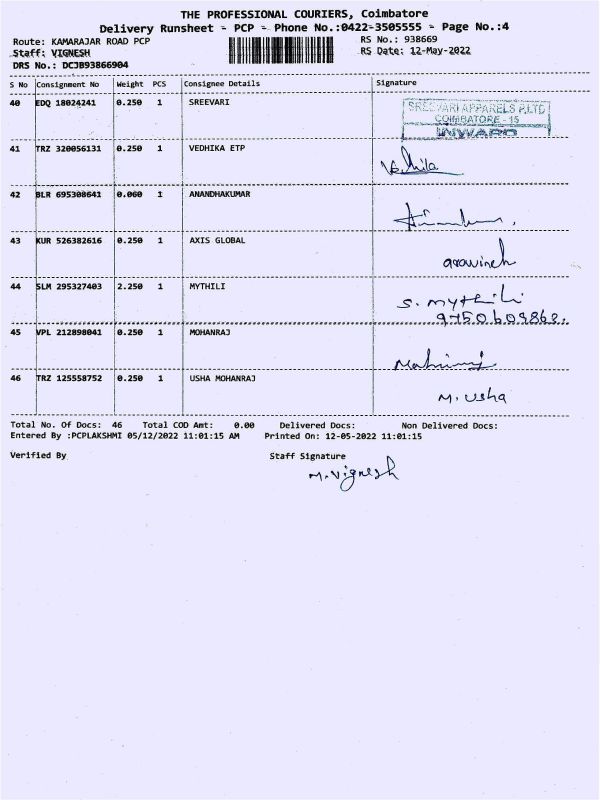 THE PROFESSIONAL COURIERS, Coimbatore
Delivery Runsheet - PCP - Phone No.:0422-3505555 - Page No.:4
Route: KAMARAJAR ROAD PCP RS No.: 938669
Staff: VIGNESH RS Date: 12-May-2022
DRS No.: DCJB93866904
S No Consignment No Weight PCS Consignee Details Signature
40 EDQ 18024241 0.250 1 SREEVARI
SREEVARI APPARELS P.LTD
COIMBATORE - 15
INWARD
41 TRZ 320056131 0.250 1 VEDHIKA ETP
42 BLR 695308641 0.060 1 ANANDHAKUMAR
43 KUR 526382616 0.250 1 AXIS GLOBAL
aravinth
44 SLM 295327403 2.250 1 MYTHILI
S. mythili
9750609868.
45 VPL 212898041 0.250 1 MOHANRAJ
46 TRZ 125558752 0.250 1 USHA MOHANRAJ
M. Usha
Total No. Of Docs: 46 Total COD Amt: 0.00 Delivered Docs: Non Delivered Docs:
Entered By :PCPLAKSHMI 05/12/2022 11:01:15 AM Printed On: 12-05-2022 11:01:15
Verified By Staff Signature
M. Vignesh